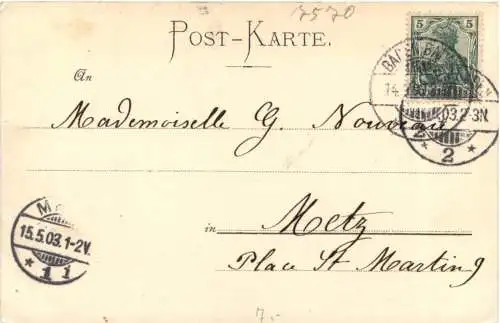 7570
POST-KARTE.
5
An
Mademoiselle G. Nouveau
BADEN-BADEN
14. 03.2-3N.
* 2 *
M
15.5.03.1-2V.
* 1 1
in Metz
Place St Martin 9
7.-